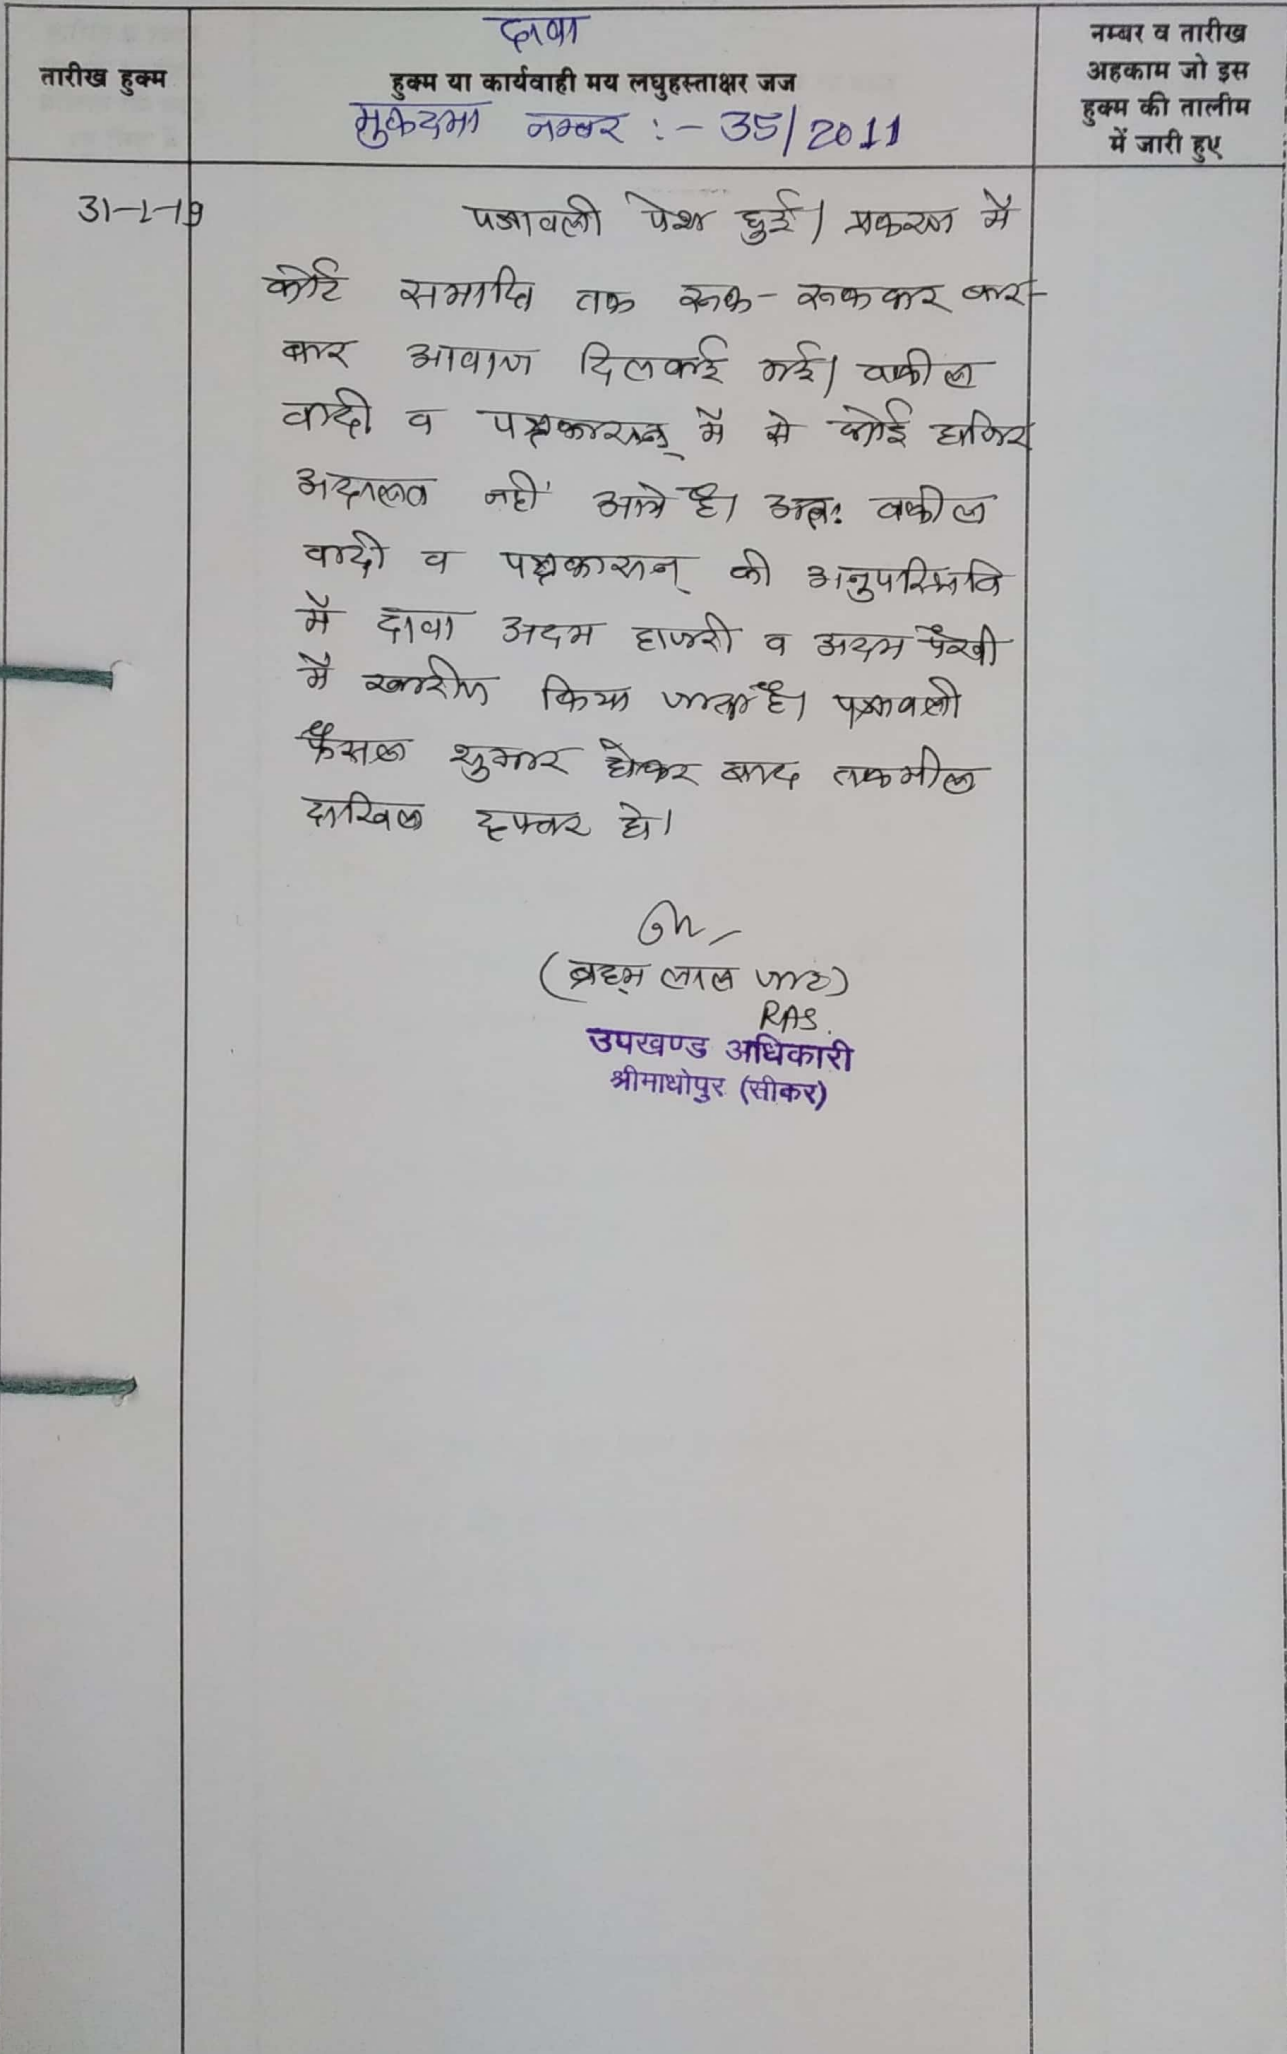 दावा
तारीख हुक्म
हुक्म या कार्यवाही मय लघुहस्ताक्षर जज
नम्बर व तारीख
अहकाम जो इस
हुक्म की तालीम
में जारी हुए
मुकदमा नम्बर :- 35/2011
31-1-19
पत्रावली पेश हुई। प्रकरण में
कोर्ट समाप्ति तक रूक-रूककर बार-
बार आवाज दिलवाई गई। वकील
वादी व पक्षकारान् में से कोई हाजिर
अदालत नहीं आये है। अतः वकील
वादी व पक्षकारान् की अनुपस्थिति
में दावा अदम हाजरी व अदम पैरवी
में खारीज किया जाता है। पत्रावली
फैसल शुमार होकर बाद तकमील
दाखिल दफ्तर हो।
(ब्रह्म लाल जाट)
RAS.
उपखण्ड अधिकारी
श्रीमाधोपुर (सीकर)